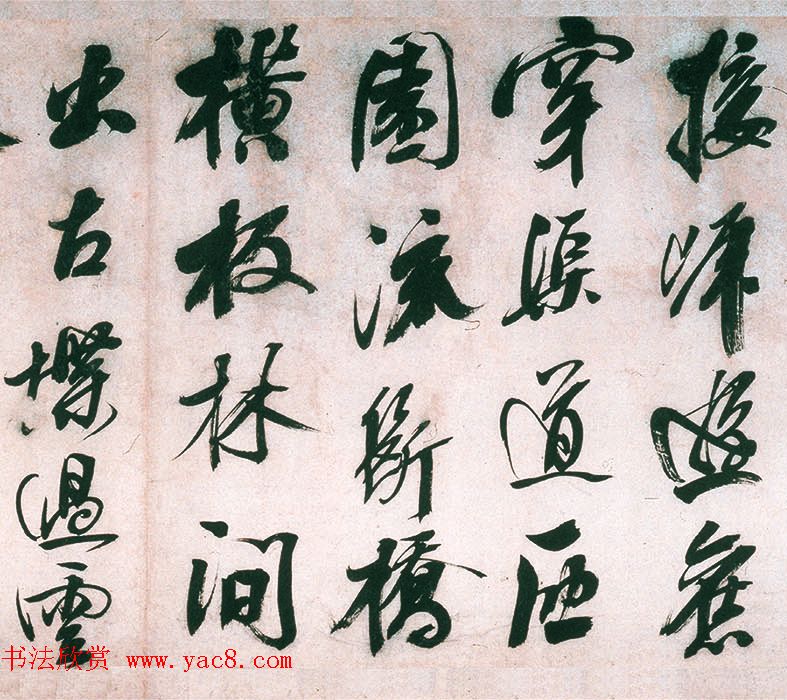 接師遊
穿渠道西
園流斷橋
橫板林間
出古堞過雲
书法欣赏 www.yac8.com